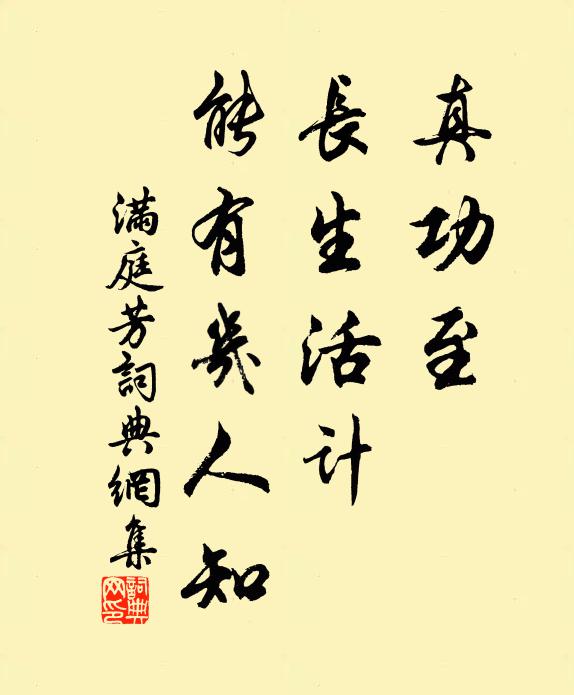 真功至
長生活計
能有幾人知
滿庭芳詞典網集
詞典
网印